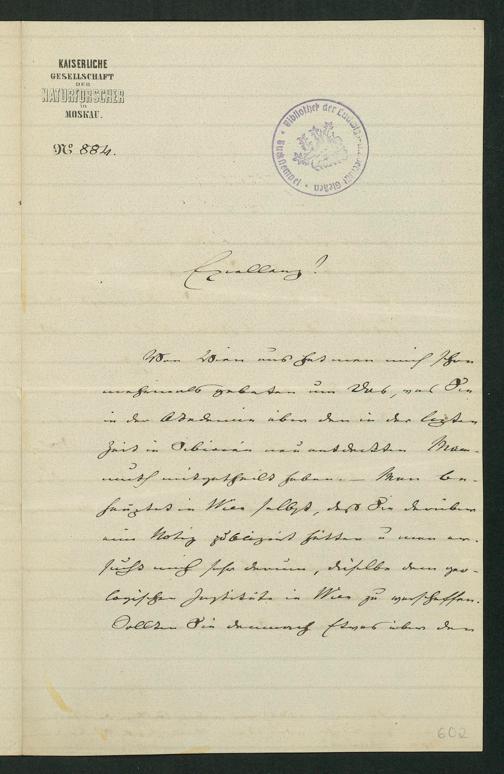 KAISERLICHE
GESELLSCHAFT
DER
NATURFORSCHER
in
MOSKAU.
№ 884.
Bibliothek der Ludwigs-Universität Gießen • Tauschstempel •
Excellenz!
Von Wien aus hat man mich schon
mehrmals gebeten um Das, was Sie
in der Akademie über den in der letzten
Zeit in Sibirien neu entdeckten Mam-
muth mitgetheilt haben. — Man be-
hauptet in Wien selbst, daß Sie darüber
eine Notiz publizirt hätten u man er-
sucht mich sehr darum, dieselbe dem geo-
logischen Institute in Wien zu verschaffen.
Sollten Sie demnach Etwas über den
602